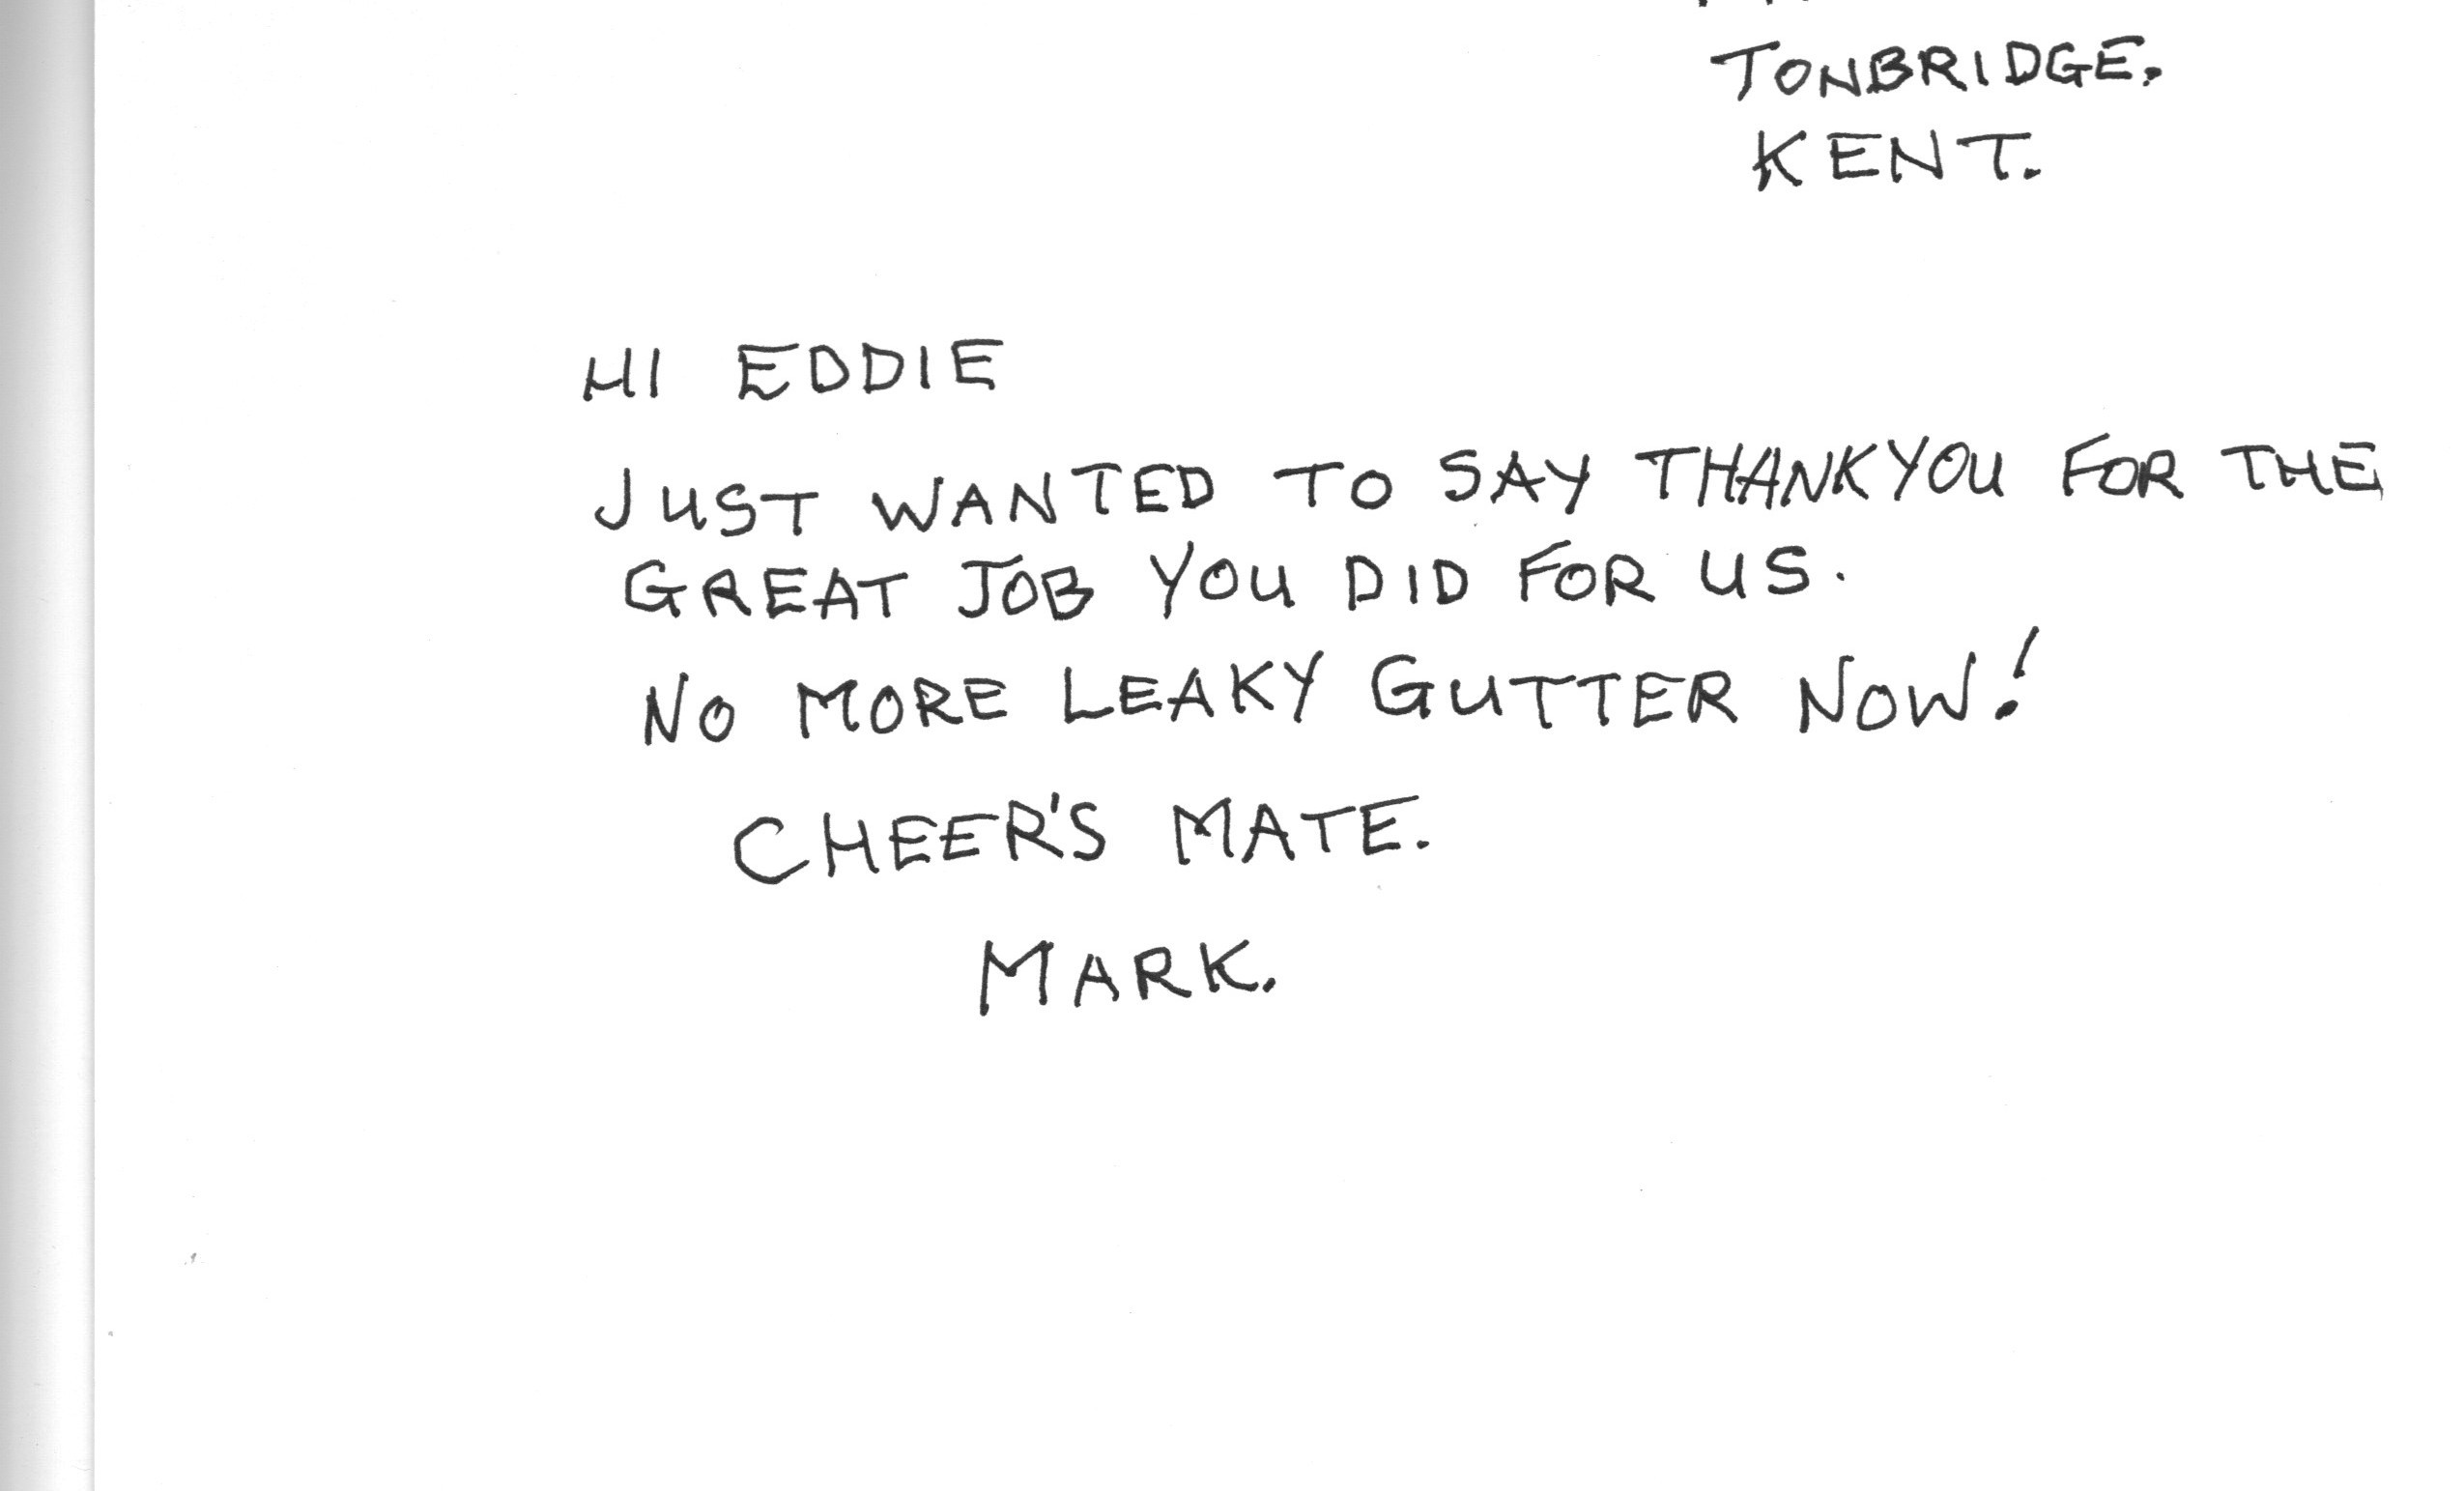 TONBRIDGE.
KENT.
HI EDDIE
JUST WANTED TO SAY THANKYOU FOR THE
GREAT JOB YOU DID FOR US.
NO MORE LEAKY GUTTER NOW!
CHEER'S MATE.
MARK.